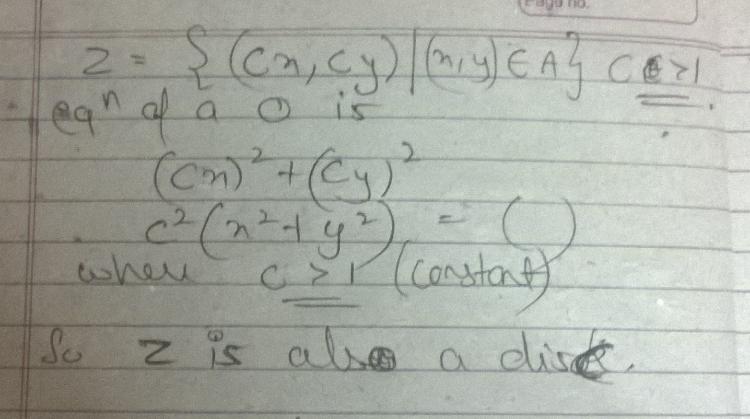 Page no.
Z = {(Cx, Cy) | (x, y) ∈ A} C > 1.
eqⁿ of a O is
(Cx)² + (Cy)²
c²(x² + y²) = ( )
where c > 1 (constant)
So Z is also a disk.